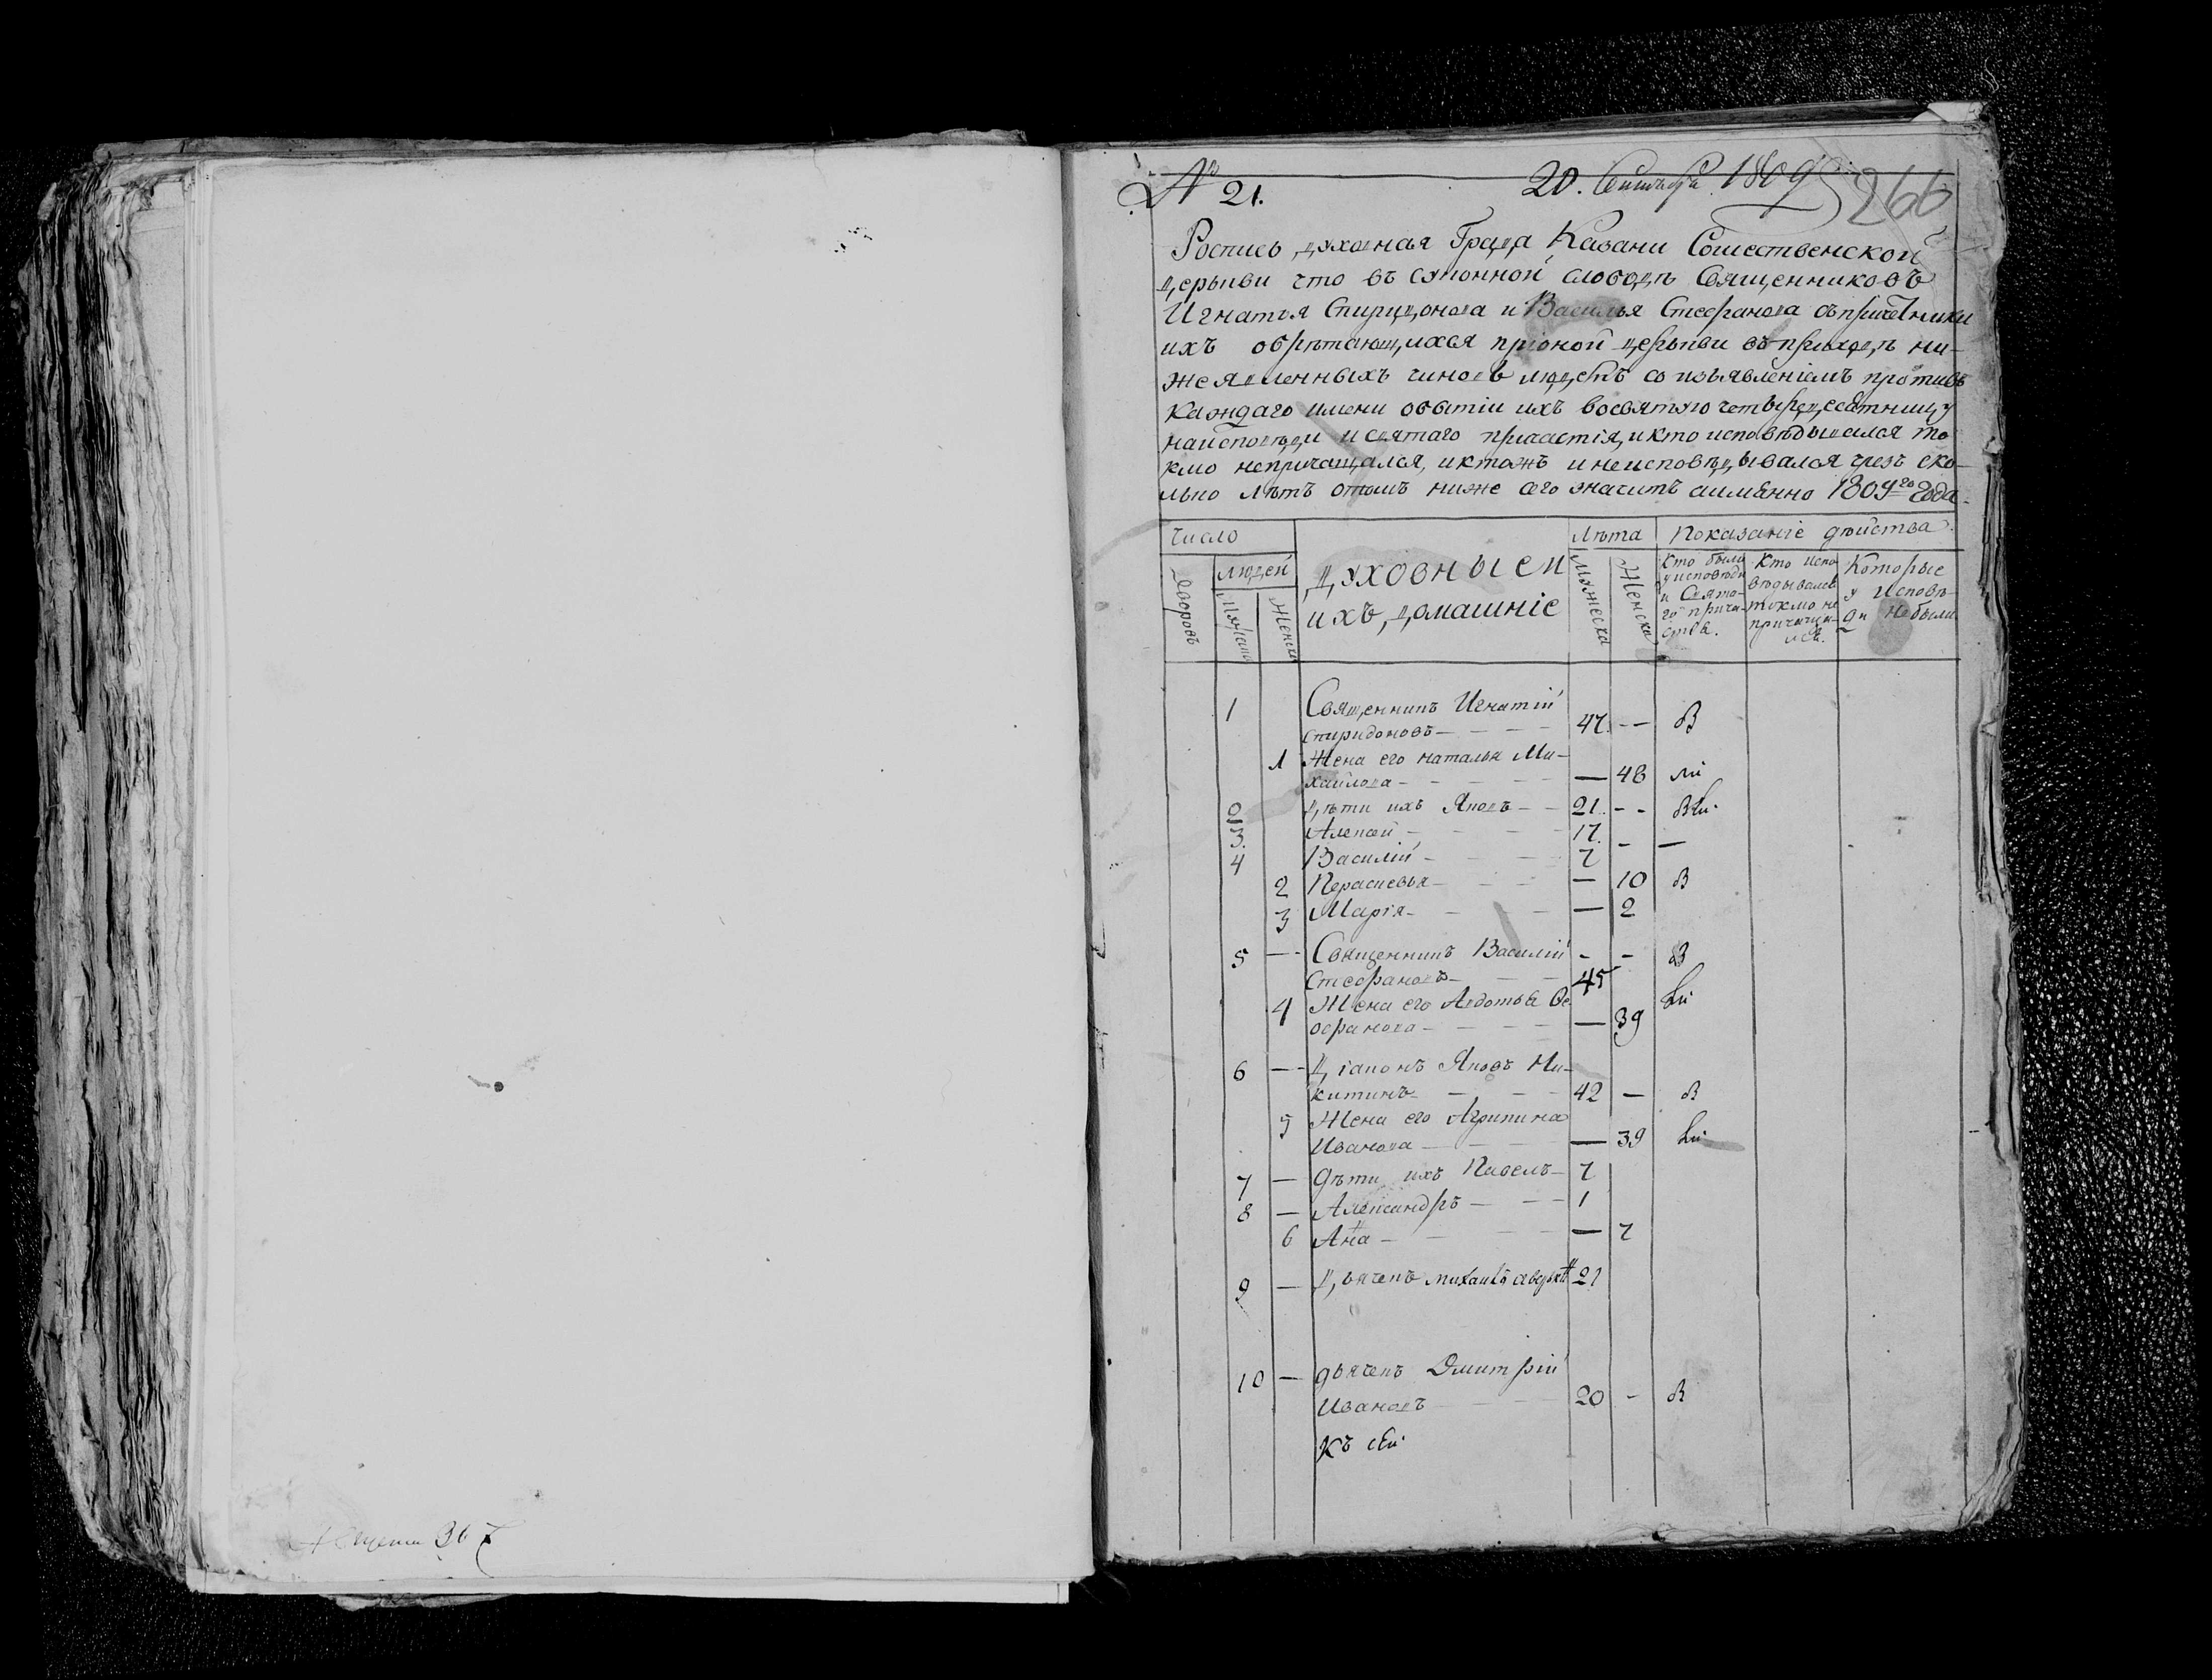 № 21.
20. Сентября 1809
266
Роспись духовная Града Казани Сошественской
церькви что въ суконной слободѣ Священниковъ
Игнатья Спиридонова и Василья Стефанова съ причетники
ихъ обрѣтающихся при оной церькви въ приходѣ ни-
же явленныхъ чиновъ людехъ со изъявленіемъ противъ
каждаго имени о бытіи ихъ во святую четыредесятницу
на исповѣди и святаго причастія, и кто исповѣдывался то
кмо непричащался, и ктожъ и неисповѣдывался чрезъ ско-
лько лѣтъ о томъ ниже сего значитъ аимянно 1809го года.
Число
Лѣта
Показаніе дѣйства.
Дворовъ
людей
Мужеска
Женска
духовныеи
ихъ домашніе
Мужеска
Женска
Кто были
у исповѣди
и Свято-
го прича-
стія.
Кто испо
вѣдывался
токмо не
причаща-
лся.
Которые
у Исповѣ-
ди небыли
1 Священникъ Игнатій
Спиридоновъ — 47. — В
1 Жена его наталья Ми-
хайлова — — 48
2 Дѣти ихъ Яковъ — 21. —
3. Алексѣй — 17. — —
4 Василій — 7
2 Параскевья — — 10 В
3 Марія — — 2
5 — Священникъ Василій — — В
Стефановъ — 45
4 Жена его Авдотья Ѳе
офанова — — 39
6 — Діаконъ Яковъ Ни-
китинъ — 42 — В
5 Жена его Агрипина
Иванова — — 39
7 — Дѣти ихъ Павелъ — 7
8 — Александръ — 1
6 Анна — — 7
9 — Дьячекъ михаилъ 21
10 — дьячекъ Дмитрій
Ивановъ — 20 — В
Къ сей
36